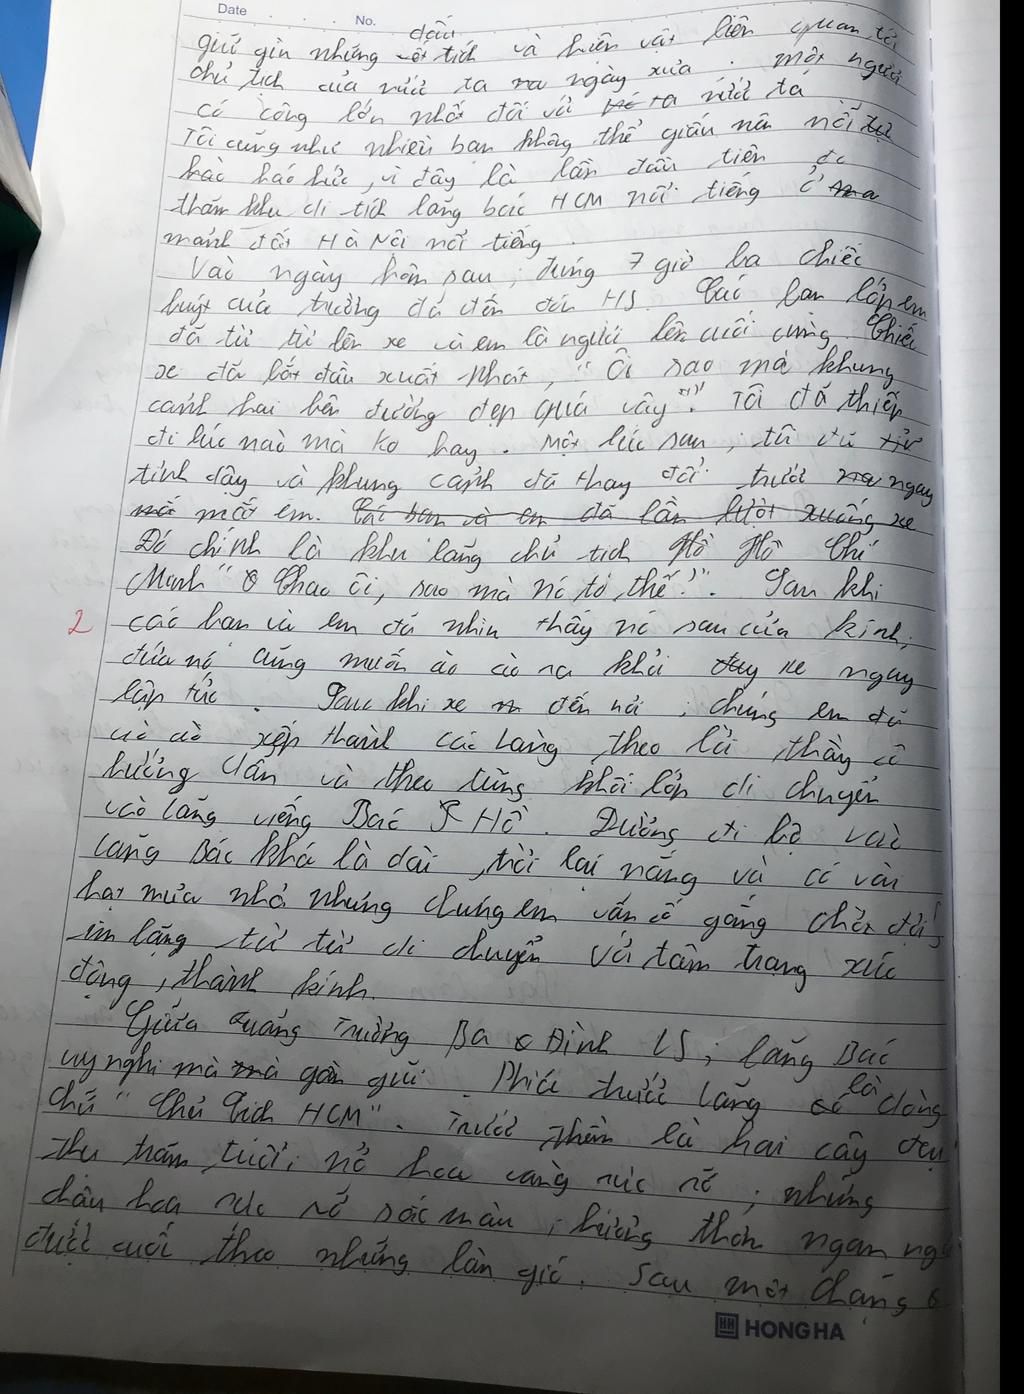 Date . . . No.
dấu
giữ gìn những tích và hiện vật liên quan tới
chủ tịch của nước ta ngày xưa. một người
có công lớn nhất đối với nước ta
Tôi cũng như nhiều bạn không thể giấu nên nỗi tự
hào háo hức, vì đây là lần đầu tiên đc
thăm khu di tích lăng bác HCM nổi tiếng ở
mảnh đất Hà Nội nổi tiếng.
Vào ngày hôm sau, đúng 7 giờ ba chiếc
buýt của trường đã đến đón HS. Các bạn lớp em
đã từ từ lên xe và em là người lên cuối cùng. Chiếc
xe đã bắt đầu xuất phát, "Ôi sao mà khung
cảnh hai bên đường đẹp quá vậy". Tôi đã thiếp
đi lúc nào mà ko hay. Một lúc sau, tôi đã
tỉnh dậy và khung cảnh đã thay đổi trước ngay
mắt em. Các bạn và em đã lần lượt xuống xe
Đó chính là khu lăng chủ tịch Hồ Chí
Minh "Chao ôi, sao mà nó to thế!". Sau khi
2 các bạn và em đã nhìn thấy nó sau cửa kính,
đứa nó cũng muốn ào ào ra khỏi xe ngay
lập tức. Sau khi xe đến nơi, chúng em đã
xếp thành các hàng theo lời thầy cô
hướng dẫn và theo từng khối lớp di chuyển
vào lăng viếng Bác Hồ. Đường đi bộ vào
lăng Bác khá là dài, trời lại nắng và có vài
hạt mưa nhỏ nhưng chúng em vẫn cố gắng chờ đợi
im lặng từ từ di chuyển với tâm trạng xúc
động, thành kính.
Giữa quảng trường Ba Đình LS, lăng Bác
uy nghi mà gần gũi. Phía trước lăng là dòng
chữ "Chủ tịch HCM". Trước thềm là hai cây đại
thụ trăm tuổi, nở hoa vàng rực rỡ, những
chậu hoa rực rỡ sắc màu, hương thơm ngan ngá
được cuối theo những làn gió. Sau một chặng
HH HONG HA